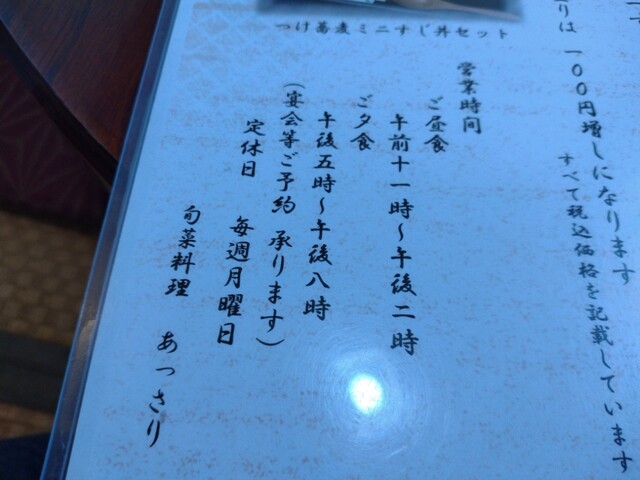 つけ蕎麦ミニすじ丼セット
りは 一〇〇円増しになります
すべて税込価格を記載しています
営業時間
ご昼食
午前十一時～午後二時
ご夕食
午後五時～午後八時
(宴会等ご予約 承ります)
定休日 毎週月曜日
旬菜料理 あっさり